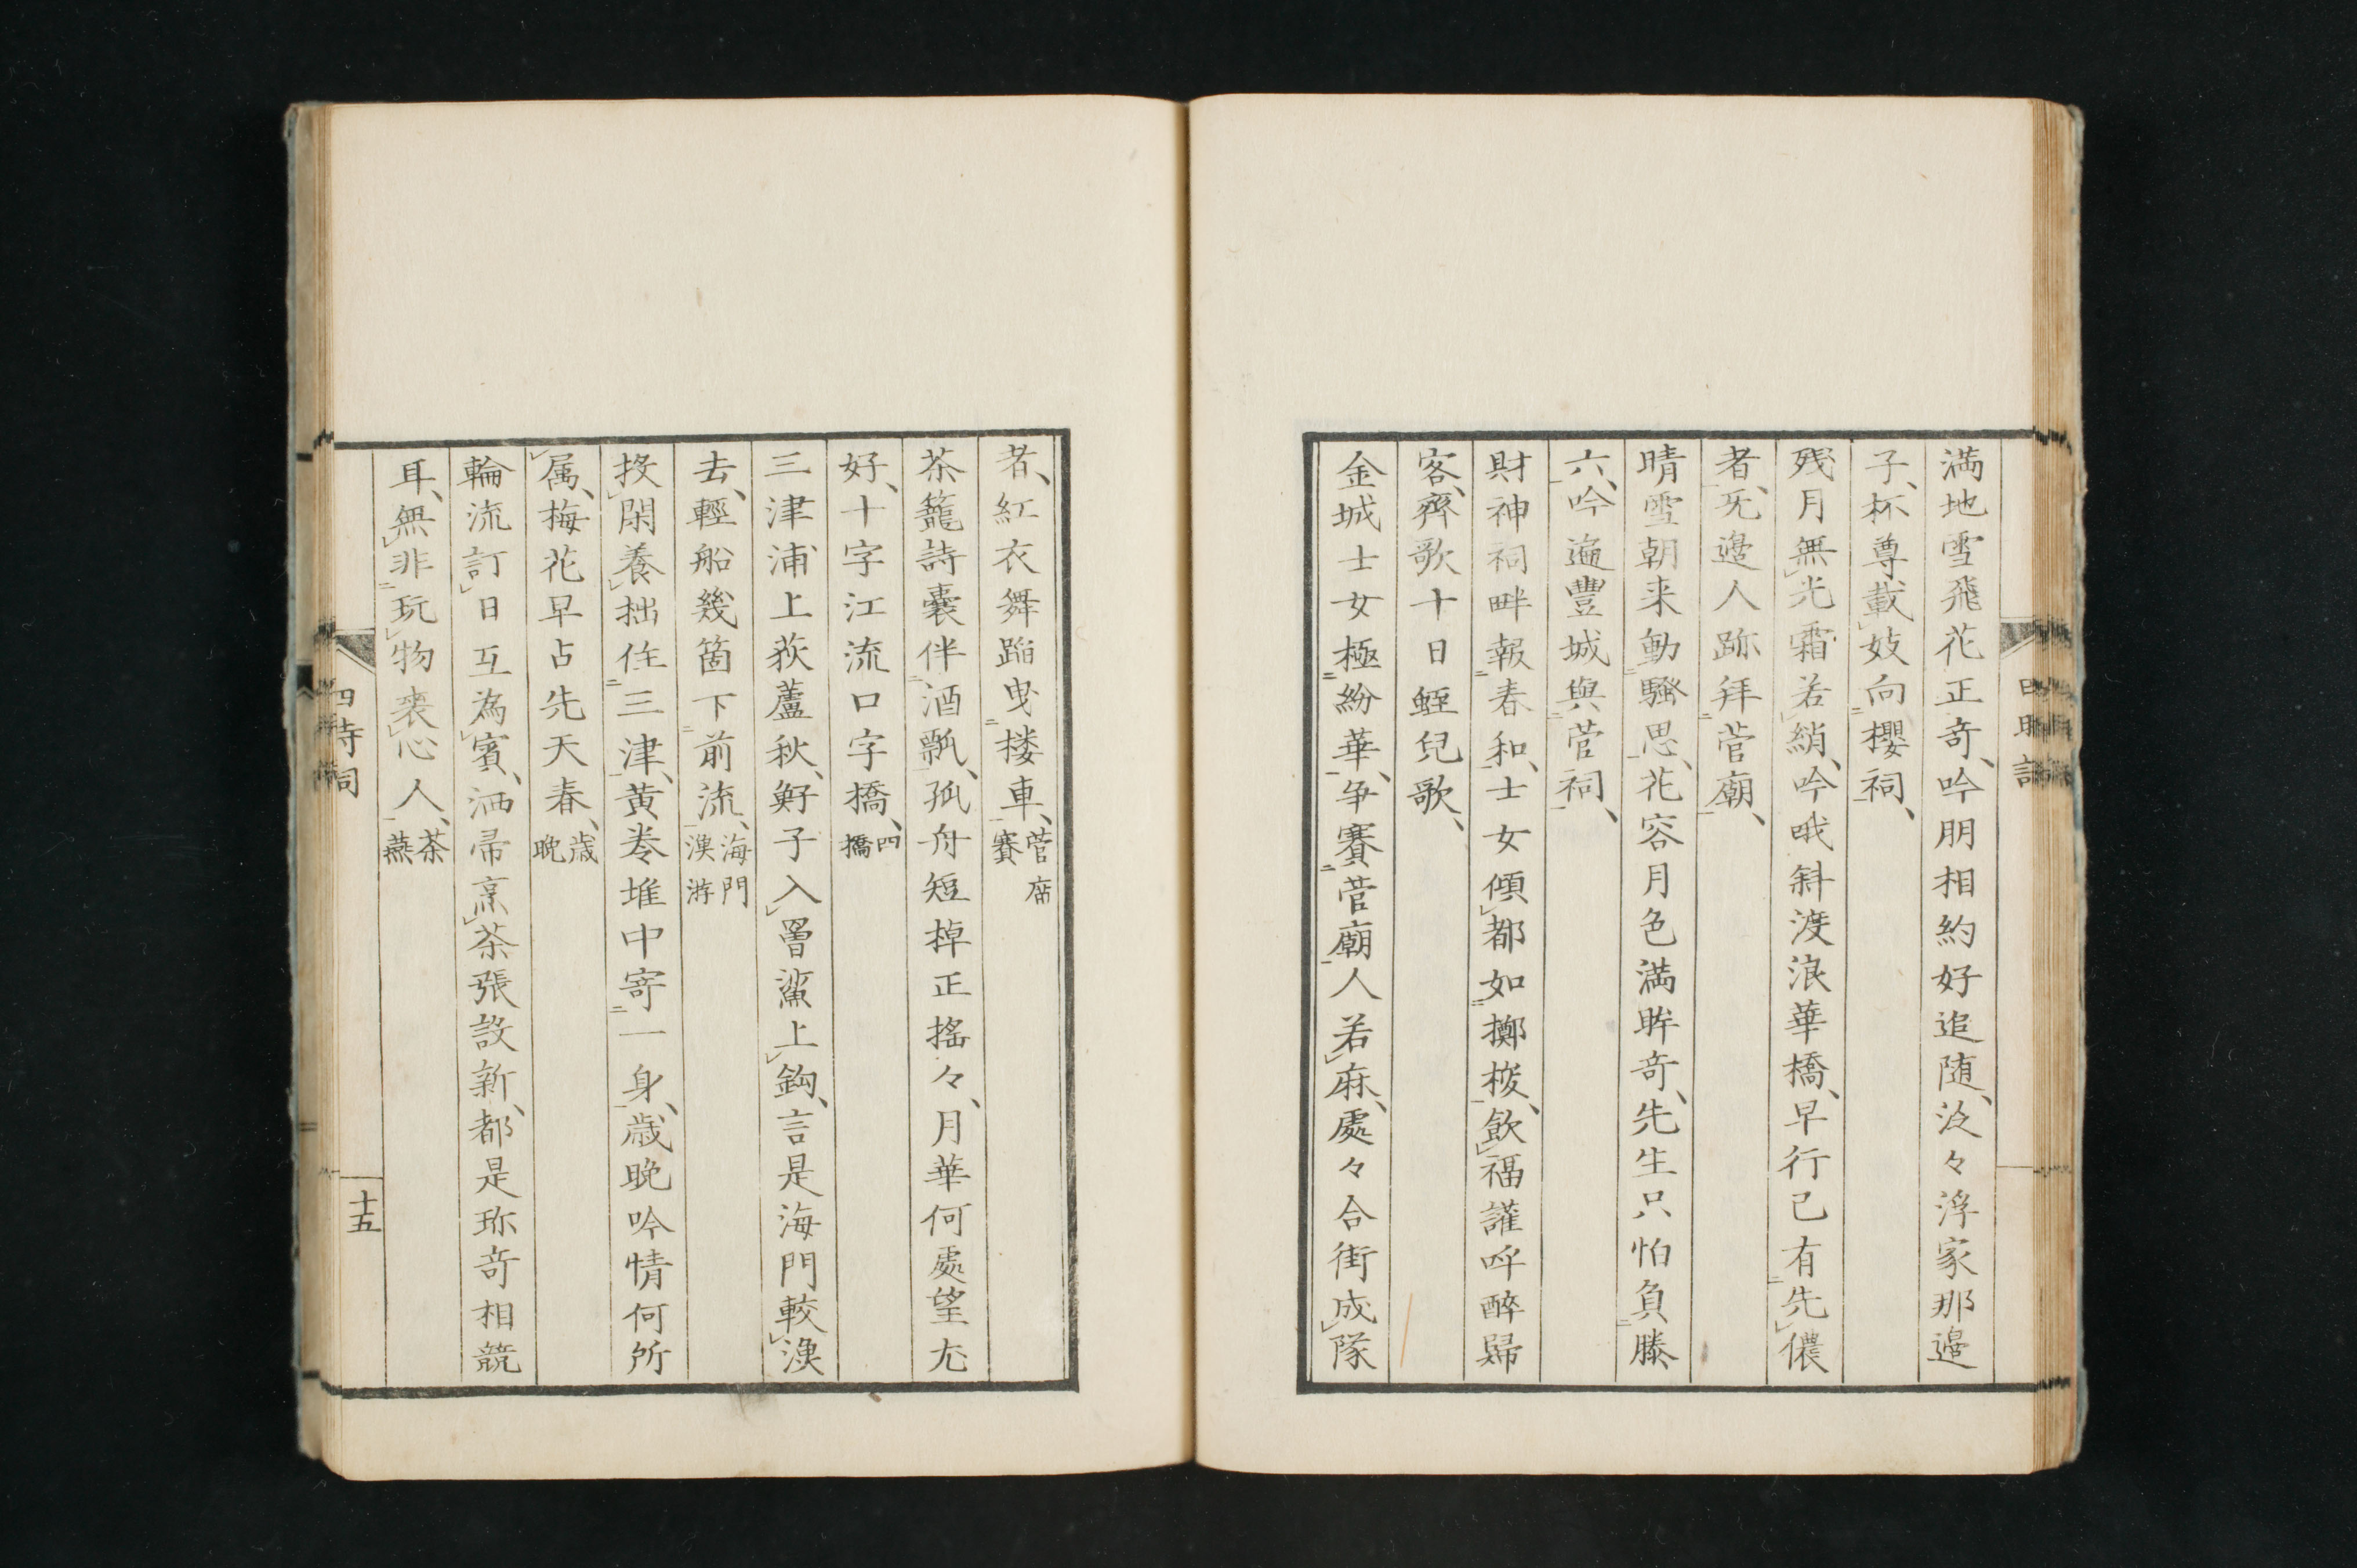 満地雪飛花正竒、吟朋相約好追随、泛々浮家那邉
子、杯尊載妓向櫻祠、
残月無光霜若綃、吟哦斜渡浪華橋、早行已有先儂
者、旡邉人跡拜菅廟、
晴雪朝来動騒思、花容月色満眸竒、先生只怕負滕
六、吟遍豐城與菅祠、
財神祠畔報春和、士女傾都如擲梭、飲福讙呼醉歸
客、齊歌十日蛭兒歌、
金城士女極紛華、争賽菅廟人若麻、處々合街成隊
者、紅衣舞蹈曳楼車、菅庿賽
茶籠詩嚢伴酒瓢、孤舟短棹正搖々、月華何處望尤
好、十字江流口字橋、四橋
三津浦上荻蘆秋、鮃子入罾鯊上鈎、言是海門較漁
去、輕船幾箇下前流、海門漁游
投閑養拙住三津、黄巻堆中寄一身、歳晩吟情何所
属、梅花早占先天春、歳晩
輪流訂日互為賓、洒帚烹茶張設新、都是珎竒相競
耳、無非玩物喪心人、茶燕
四時詞
十五